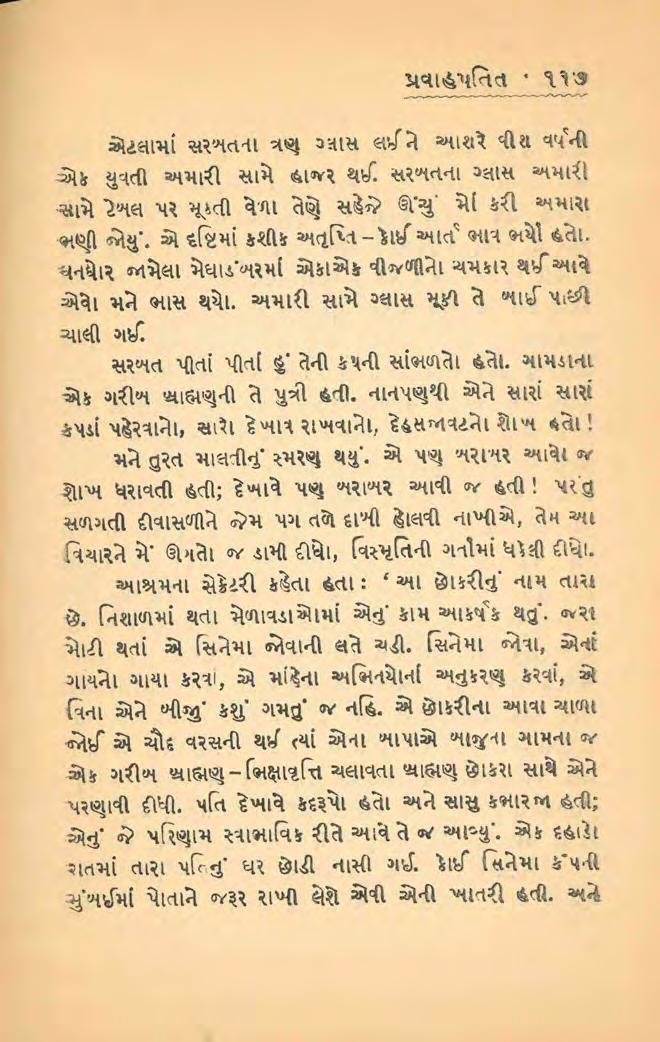 પ્રવાહપતિત • ૧૧૭
એટલામાં સરબતના ત્રણ ગ્લાસ લઈને આશરે વીશ વર્ષની
એક યુવતી અમારી સામે હાજર થઈ. સરબતના ગ્લાસ અમારી
સામે ટેબલ પર મૂકતી વેળા તેણે સહેજે ઊંચું મોં કરી અમારા
ભણી જોયું. એ દૃષ્ટિમાં કશીક અતૃપ્તિ – કોઈ આર્ત ભાવ ભર્યો હતો.
ઘનઘોર જામેલા મેઘાડંબરમાં એકાએક વીજળીનો ચમકાર થઈ આવે
એવો મને ભાસ થયો. અમારી સામે ગ્લાસ મૂકી તે બાઈ પાછી
ચાલી ગઈ.
સરબત પીતાં પીતાં હું તેની કથની સાંભળતો હતો. ગામડાના
એક ગરીબ બ્રાહ્મણની તે પુત્રી હતી. નાનપણથી એને સારાં સારાં
કપડાં પહેરવાનો, સારો દેખાવ રાખવાનો, દેહસજાવટનો શોખ હતો !
મને તુરત માલતીનું સ્મરણ થયું. એ પણ બરાબર આવો જ
શોખ ધરાવતી હતી; દેખાવે પણ બરાબર આવી જ હતી ! પરંતુ
સળગતી દીવાસળીને જેમ પગ તળે દાબી હોલવી નાખીએ, તેમ આ
વિચારને મેં ઊગતો જ ડામી દીધો, વિસ્મૃતિની ગર્તામાં ધકેલી દીધો.
આશ્રમના સેક્રેટરી કહેતા હતા : ‘ આ છોકરીનું નામ તારા
છે. નિશાળમાં થતા મેળાવડાઓમાં એનું કામ આકર્ષક થતું. જરા
મોટી થતાં એ સિનેમા જોવાની લતે ચડી. સિનેમા જોવા, એનાં
ગાયનો ગાયા કરવાં, એ માંહેના અભિનયોનાં અનુકરણ કરવાં, એ
વિના એને બીજું કશું ગમતું જ નહિ. એ છોકરીના આવા ચાળા
જોઈ એ ચૌદ વરસની થઈ ત્યાં એના બાપાએ બાજુના ગામના જ
એક ગરીબ બ્રાહ્મણ – ભિક્ષાવૃત્તિ ચલાવતા બ્રાહ્મણ છોકરા સાથે એને
પરણાવી દીધી. પતિ દેખાવે કદરૂપો હતો અને સાસુ કભારજા હતી;
એનું જે પરિણામ સ્વાભાવિક રીતે આવે તે જ આવ્યું. એક દહાડો
રાતમાં તારા પતિનું ઘર છોડી નાસી ગઈ. કોઈ સિનેમા કંપની
મુંબઈમાં પોતાને જરૂર રાખી લેશે એવી એની ખાતરી હતી. અને